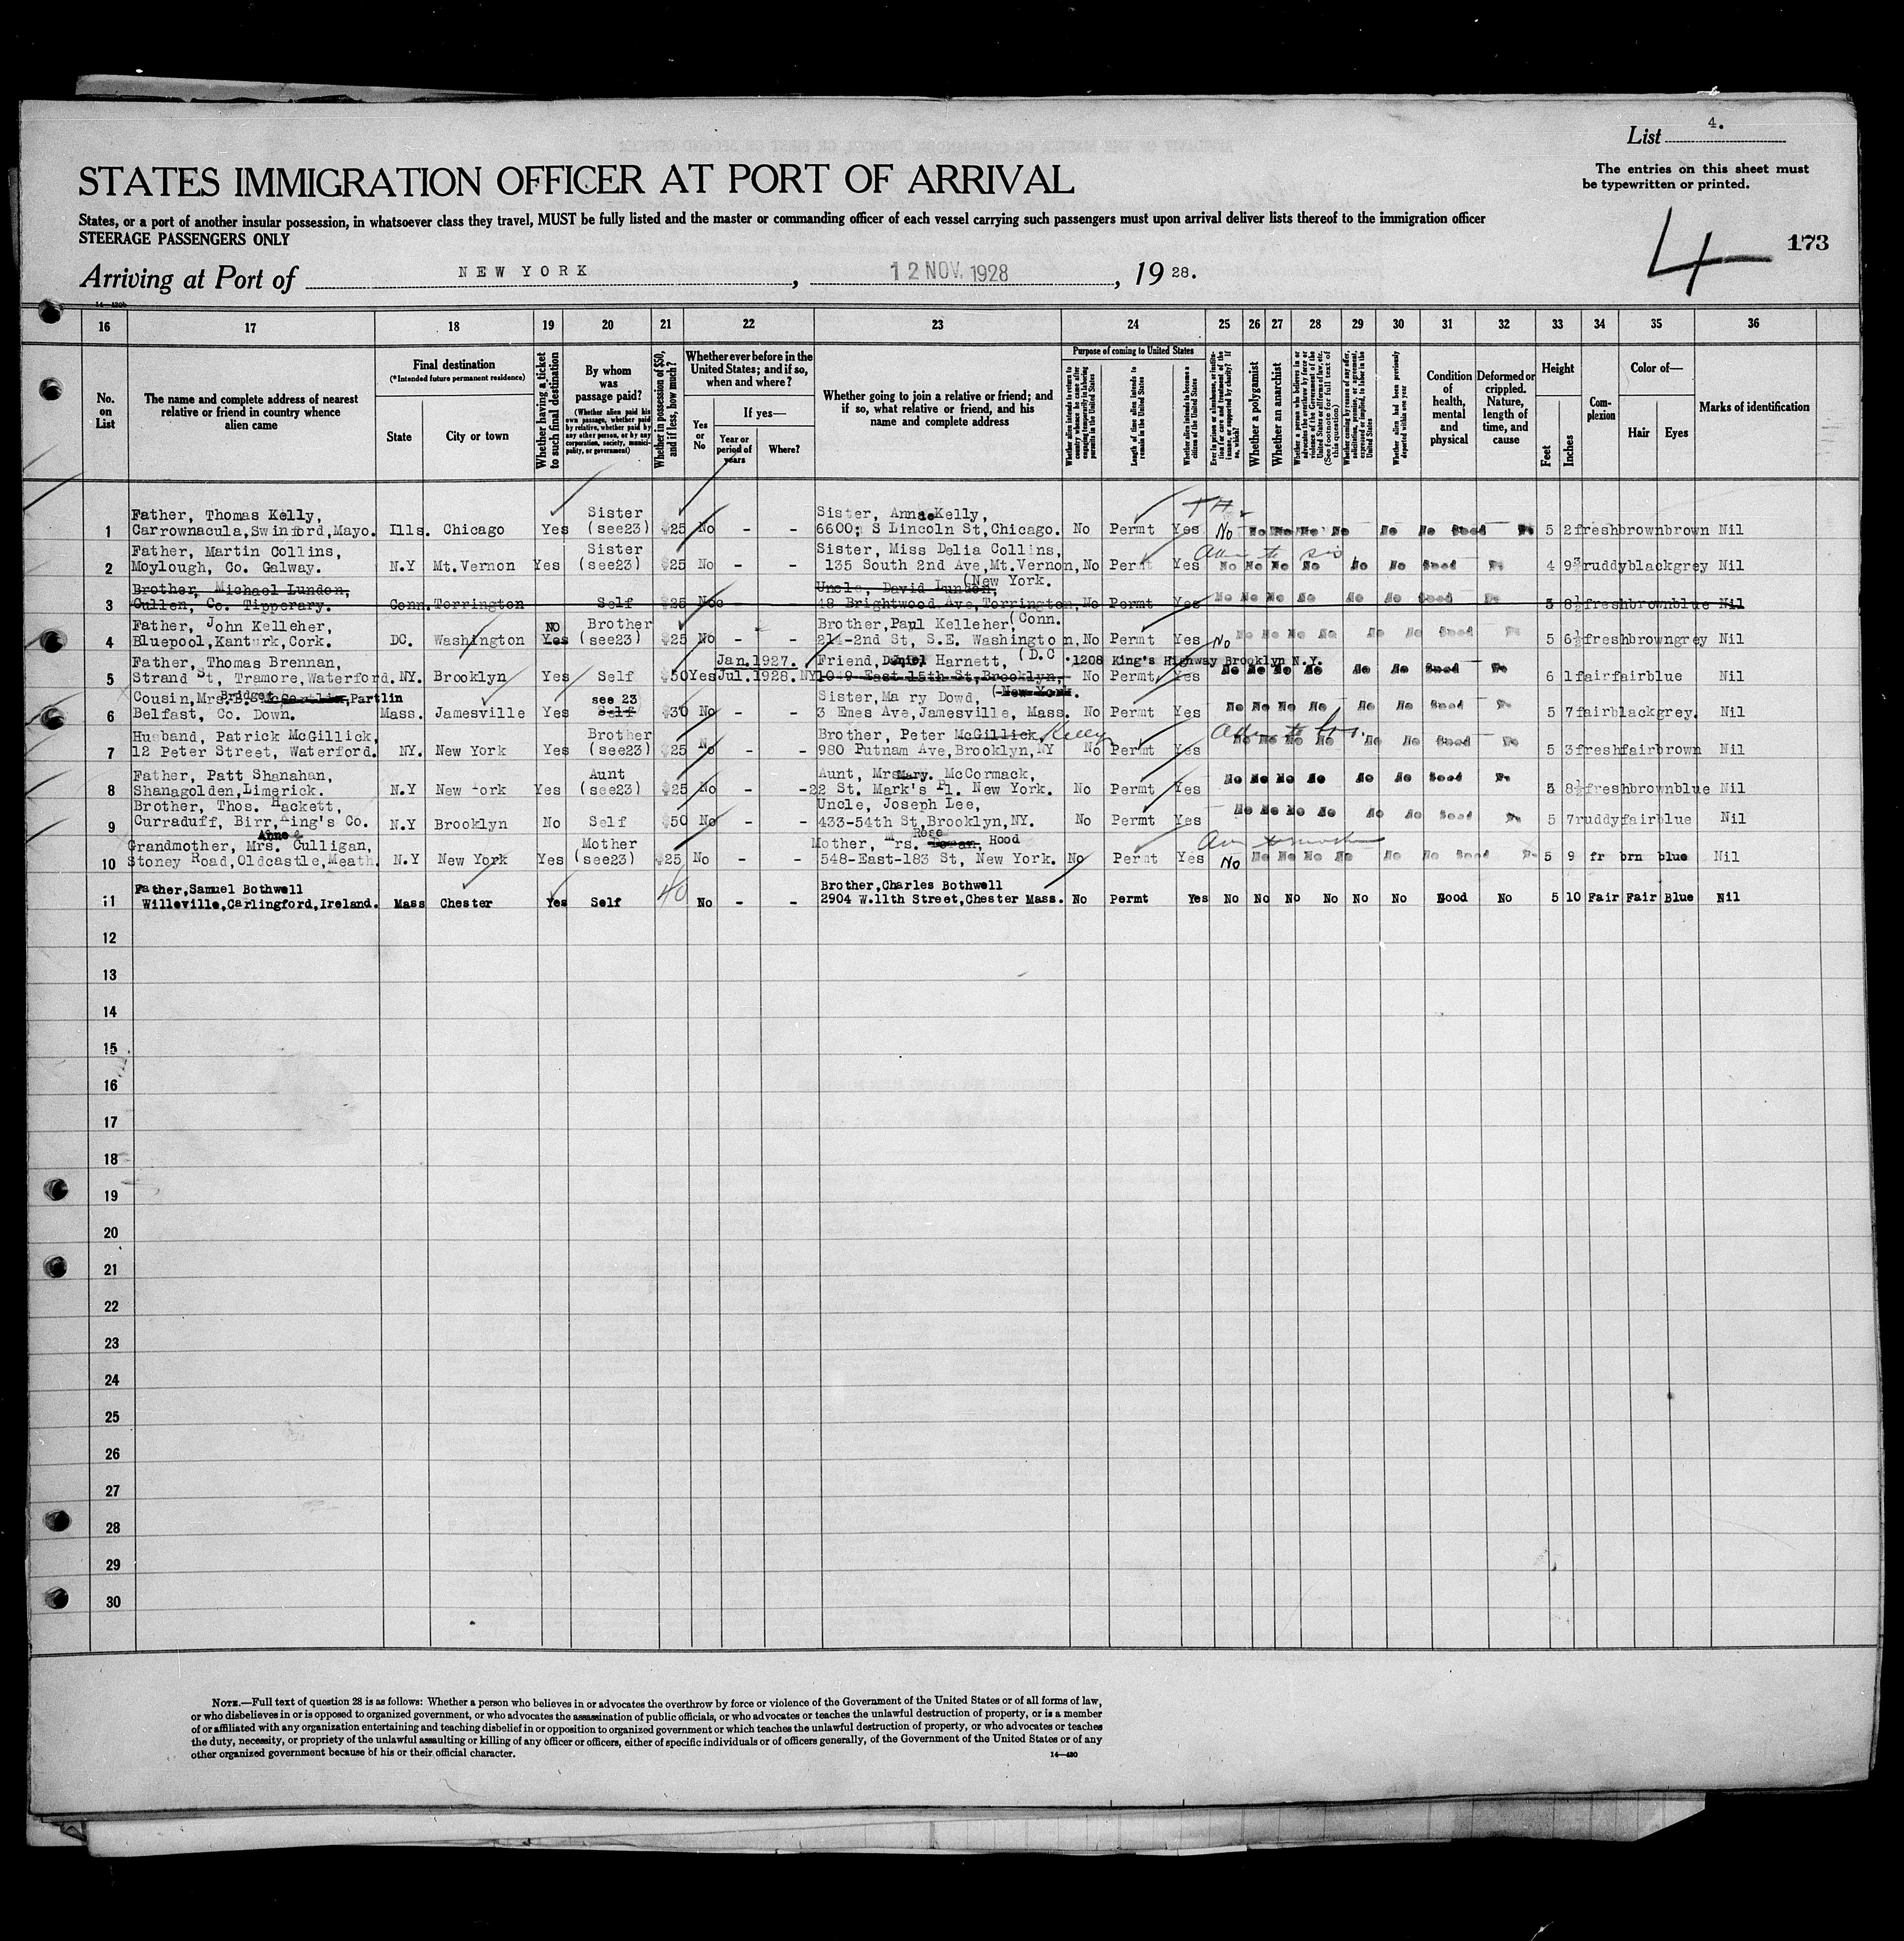 List 4.
The entries on this sheet must
be typewritten or printed.
STATES IMMIGRATION OFFICER AT PORT OF ARRIVAL
States, or a port of another insular possession, in whatsoever class they travel, MUST be fully listed and the master or commanding officer of each vessel carrying such passengers must upon arrival deliver lists thereof to the immigration officer
STEERAGE PASSENGERS ONLY
4 173
Arriving at Port of NEW YORK, 12 NOV. 1928, 1928.
16 17 18 19 20 21 22 23 24 25 26 27 28 29 30 31 32 33 34 35 36
No. on List
The name and complete address of nearest relative or friend in country whence alien came
Final destination
(*Intended future permanent residence)
State
City or town
Whether having a ticket to such final destination
By whom was passage paid?
(Whether alien paid his own passage, whether paid by relative, whether paid by any other person, or by any corporation, society, municipality, or government)
Whether in possession of $50, and if less, how much?
Whether ever before in the United States; and if so, when and where?
Yes or No
If yes—
Year or period of years
Where?
Whether going to join a relative or friend; and if so, what relative or friend, and his name and complete address
Purpose of coming to United States
Whether alien intends to return to country whence he came after engaging temporarily in laboring pursuits in the United States
Length of time alien intends to remain in the United States
Whether alien intends to become a citizen of the United States
Ever in prison or almshouse, or institution for care and treatment of the insane, or supported by charity? If so, which?
Whether a polygamist
Whether an anarchist
Whether a person who believes in or advocates the overthrow by force or violence of the Government of the United States or all forms of law, etc. (See footnote for full text of this question)
Whether coming by reason of any offer, solicitation, promise, or agreement, expressed or implied, to labor in the United States
Whether alien had been previously deported within one year
Condition of health, mental and physical
Deformed or crippled. Nature, length of time, and cause
Height
Feet
Inches
Complexion
Color of—
Hair
Eyes
Marks of identification
Father, Thomas Kelly, Sister Sister, Anna Kelly,
1 Carrownacula, Swinford, Mayo. Ills. Chicago Yes (see23) $25 No - - 6600; S Lincoln St, Chicago. No Permt Yes No No No No No No No Good No 5 2 fresh brown brown Nil
Father, Martin Collins, Sister Sister, Miss Delia Collins,
2 Moylough, Co. Galway. N.Y Mt.Vernon Yes (see23) $25 No - - 135 South 2nd Ave, Mt.Vernon, No Permt Yes No No No No No No Good No 4 9½ ruddy black grey Nil
(New York.
Brother, Michael Lundon, Uncle, David Lundon,
3 Cullen, Co. Tipperary. Conn. Torrington Self $25 No 48 Brightwood Ave, Torrington, No Permt Yes No No No No No No Good No 5 8½ fresh brown blue Nil
(Conn.
Father, John Kelleher, NO Brother Brother, Paul Kelleher,
4 Bluepool, Kanturk, Cork. DC. Washington Yes (see23) $25 No - - 214-2nd St, S.E. Washington, No Permt Yes No No No No No No No Good No 5 6½ fresh brown grey Nil
(D.C
Father, Thomas Brennan, Jan.1927. Friend, Daniel Harnett, 1208 King's Highway Brooklyn N.Y.
5 Strand St, Tramore, Waterford. NY. Brooklyn Yes Self $50 Yes Jul.1928. NY 1049 East 15th St, Brooklyn, No Permt Yes No No No No No No Good No 6 1 fair fair blue Nil
(New York.
Cousin, Mrs. B. Bridget Partlin see 23 Sister, Mary Dowd,
6 Belfast, Co. Down. Mass. Jamesville Yes Self $30 No - - 3 Emes Ave, Jamesville, Mass. No Permt Yes No No No No No No Good No 5 7 fair black grey. Nil
Husband, Patrick McGillick, Brother Brother, Peter McGillick, Kelly
7 12 Peter Street, Waterford. NY. New York Yes (see23) $25 No - - 980 Putnam Ave, Brooklyn, NY No Permt Yes No No No No No No Good No 5 3 fresh fair brown Nil
Father, Patt Shanahan, Aunt Aunt, Mrs Mary. McCormack,
8 Shanagolden, Limerick. N.Y New York Yes (see23) $25 No - - 22 St. Mark's Pl. New York. No Permt Yes No No No No No No Good No 5 8½ fresh brown blue Nil
Brother, Thos. Hackett, Uncle, Joseph Lee,
9 Curraduff, Birr, King's Co. N.Y Brooklyn No Self $50 No - - 433-54th St, Brooklyn, NY. No Permt Yes No No No No No No Good No 5 7 ruddy fair blue Nil
Anne Rose
Grandmother, Mrs. Culligan, Mother Mother, Mrs. Hood
10 Stoney Road, Oldcastle, Meath. N.Y New York Yes (see23) $25 No - - 548-East-183 St, New York. No Permt Yes No No No No No No No Good No 5 9 fr brn blue Nil
Father, Samuel Bothwell Brother, Charles Bothwell
11 Willeville, Carlingford, Ireland. Mass Chester Yes Self 40 No - - 2904 W.11th Street, Chester Mass. No Permt Yes No No No No No No Good No 5 10 Fair Fair Blue Nil
12
13
14
15
16
17
18
19
20
21
22
23
24
25
26
27
28
29
30
NOTE.—Full text of question 28 is as follows: Whether a person who believes in or advocates the overthrow by force or violence of the Government of the United States or of all forms of law,
or who disbelieves in or is opposed to organized government, or who advocates the assassination of public officials, or who advocates or teaches the unlawful destruction of property, or is a member
of or affiliated with any organization entertaining and teaching disbelief in or opposition to organized government or which teaches the unlawful destruction of property, or who advocates or teaches
the duty, necessity, or propriety of the unlawful assaulting or killing of any officer or officers, either of specific individuals or of officers generally, of the Government of the United States or of any
other organized government because of his or their official character.
14—430